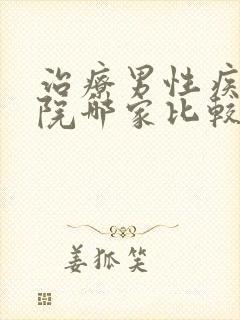 治療男性疾
院哪家比較
姜狐笑